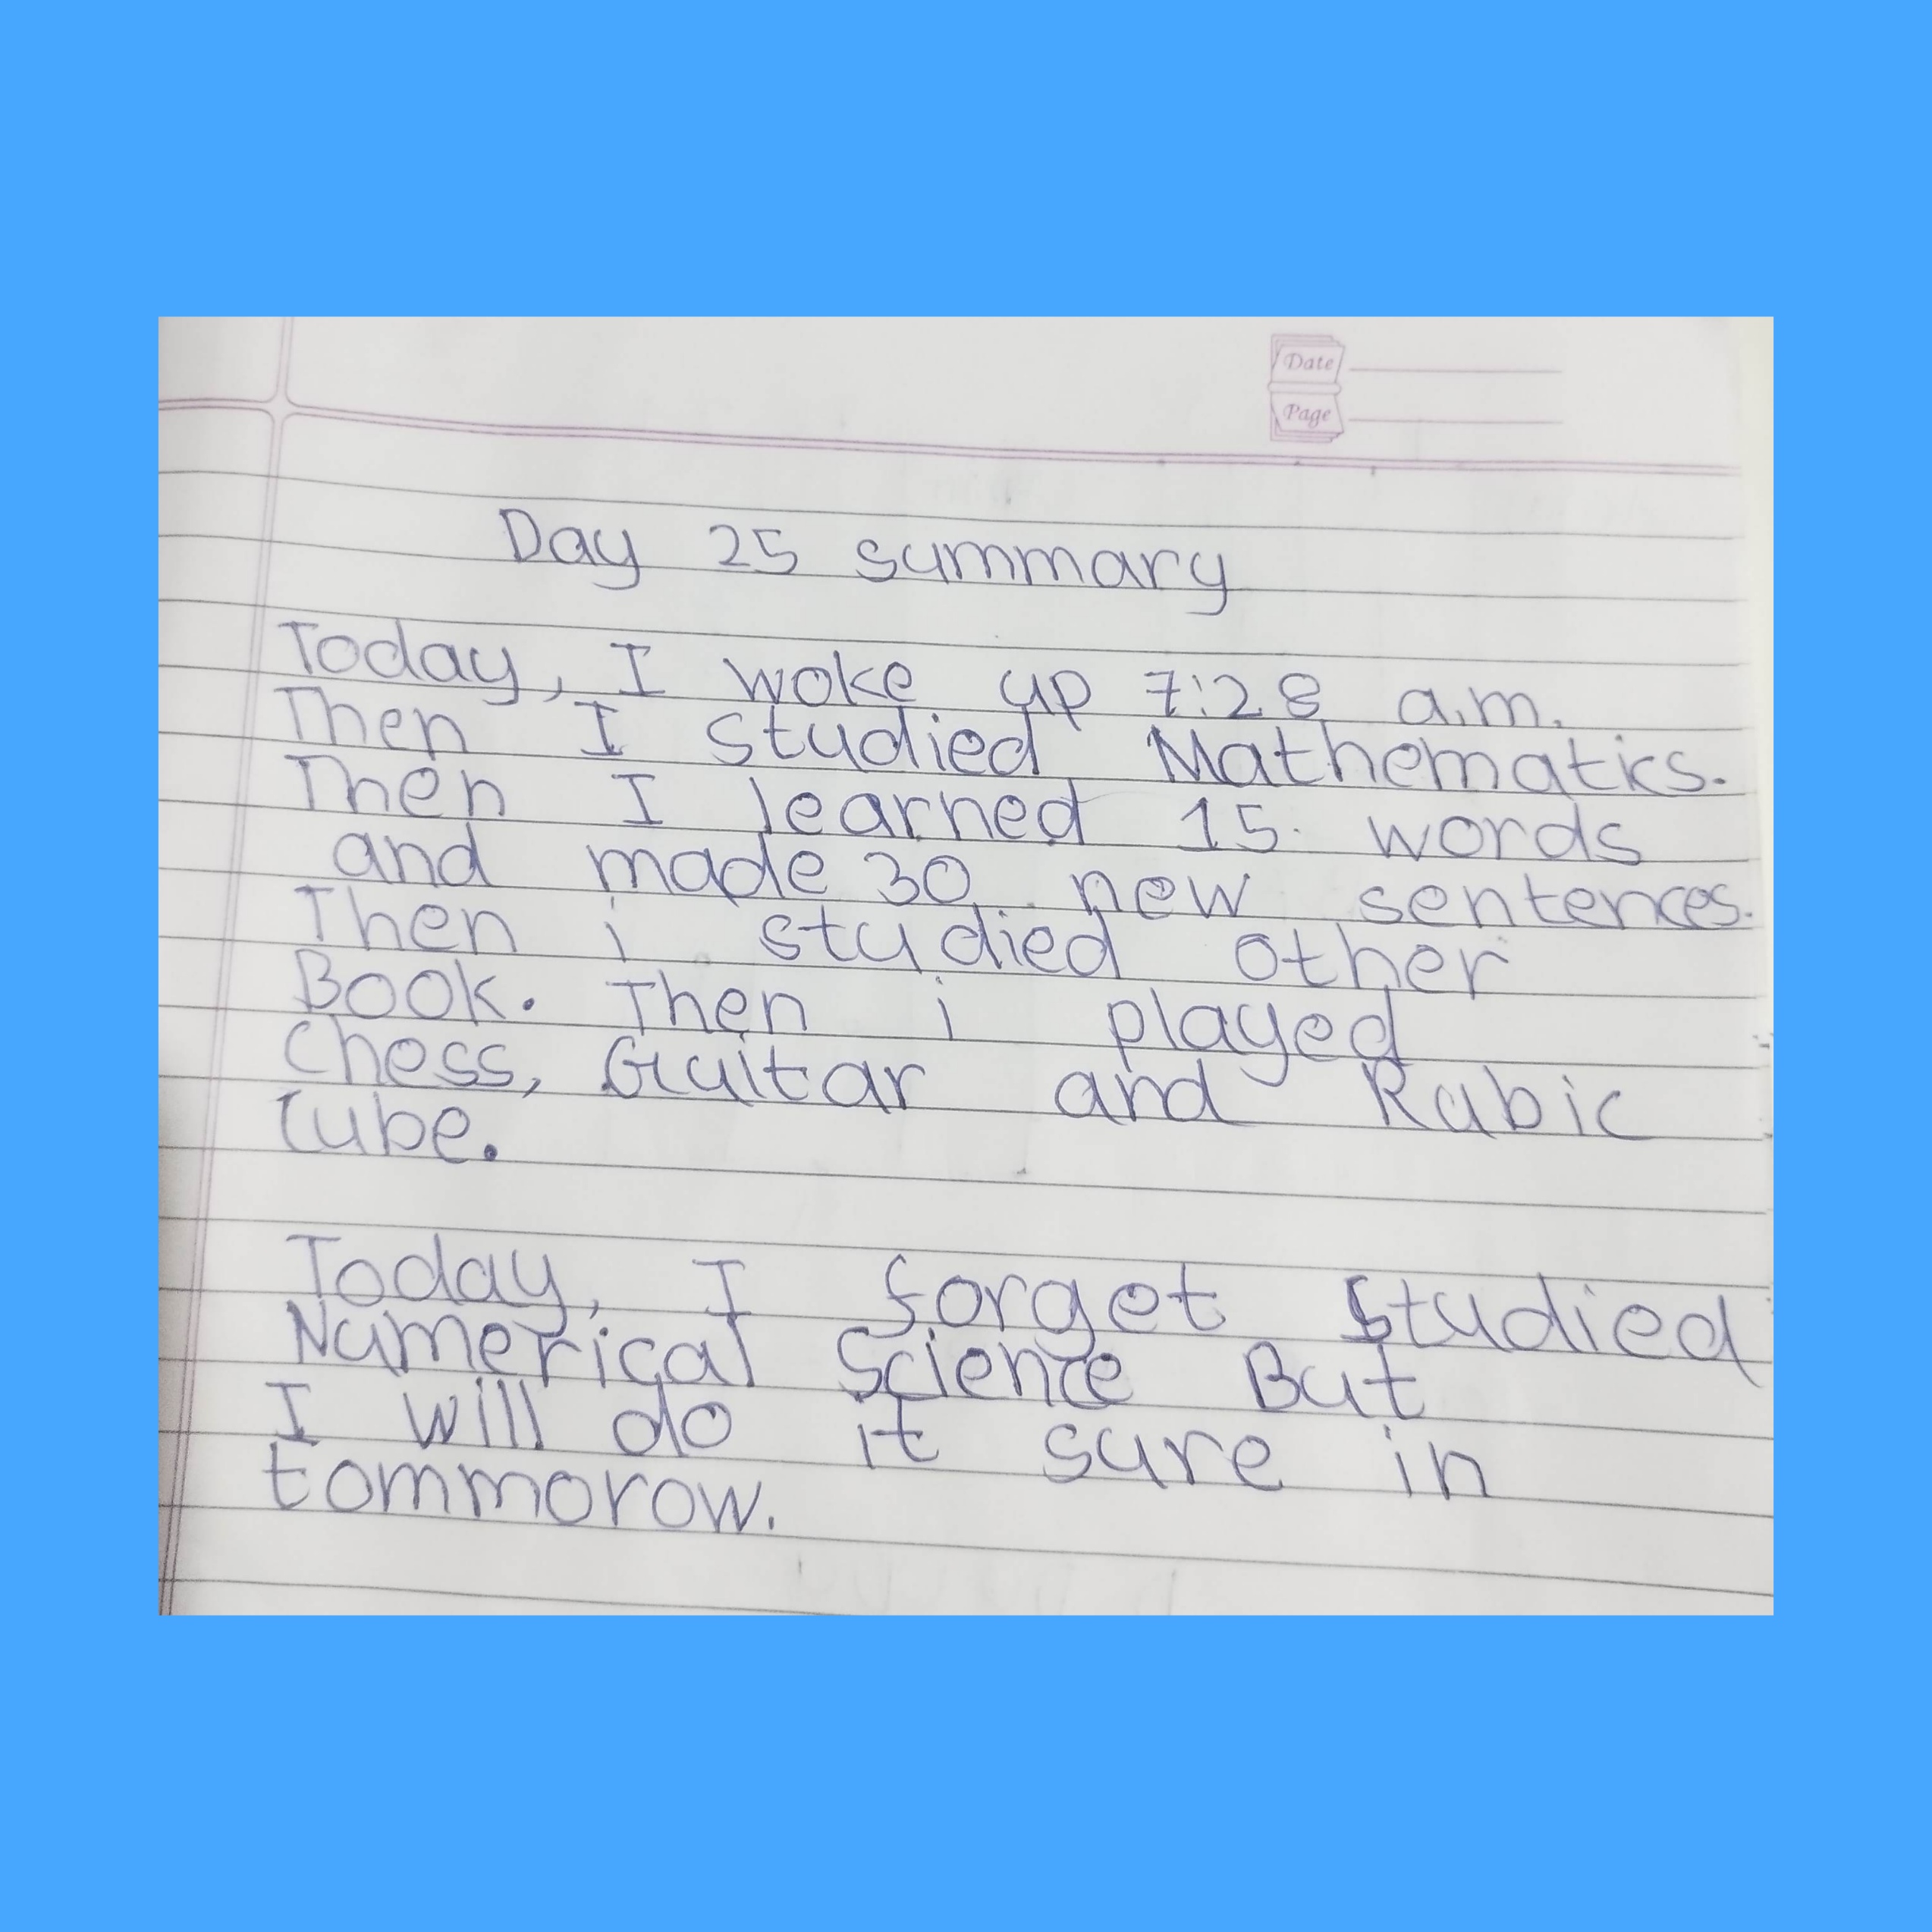 Date
Page
Day 25 summary
Today, I woke up 7:28 a.m.
Then I studied Mathematics.
Then I learned 15 words
and made 30 new sentences.
Then i studied other
Book. Then i played
Chess, Guitar and Rubic
Cube.
Today, I forget Studied
Numerical Science But
I will do it sure in
tommorow.